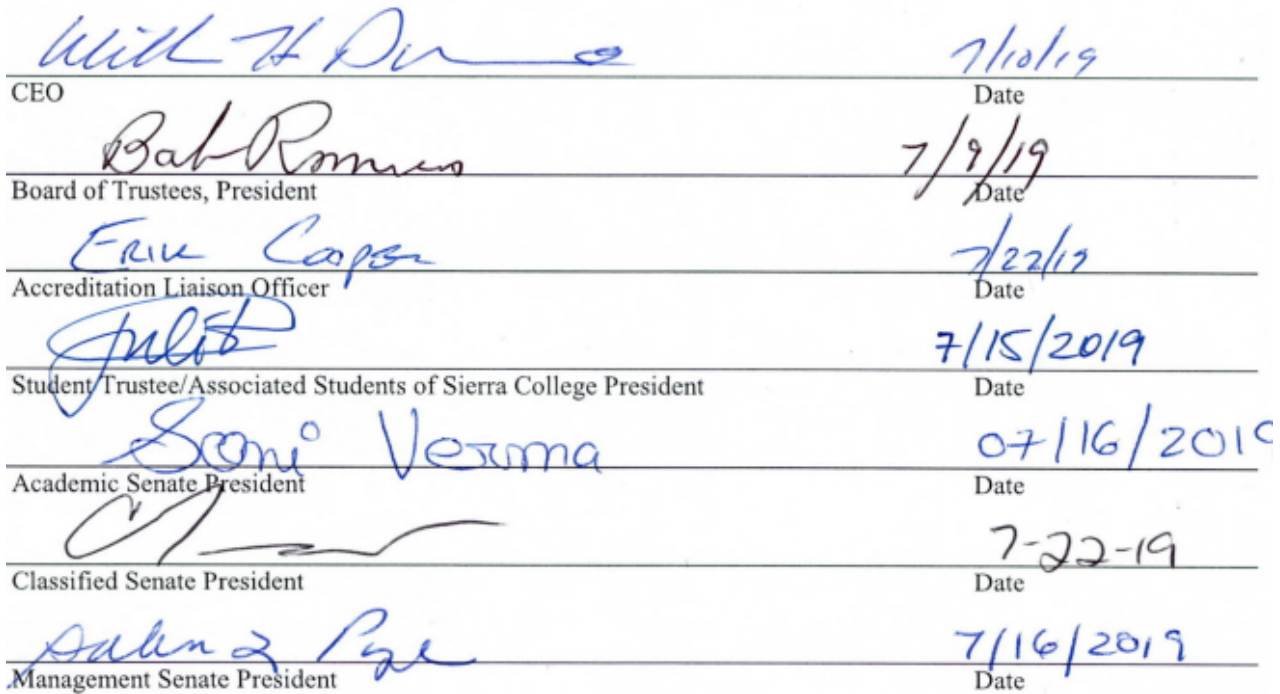 7/10/19
CEO Date
Bob 7/9/19
Board of Trustees, President Date
Erik Cooper 7/22/19
Accreditation Liaison Officer Date
7/15/2019
Student Trustee/Associated Students of Sierra College President Date
Soni Verma 07/16/2019
Academic Senate President Date
7-22-19
Classified Senate President Date
7/16/2019
Management Senate President Date